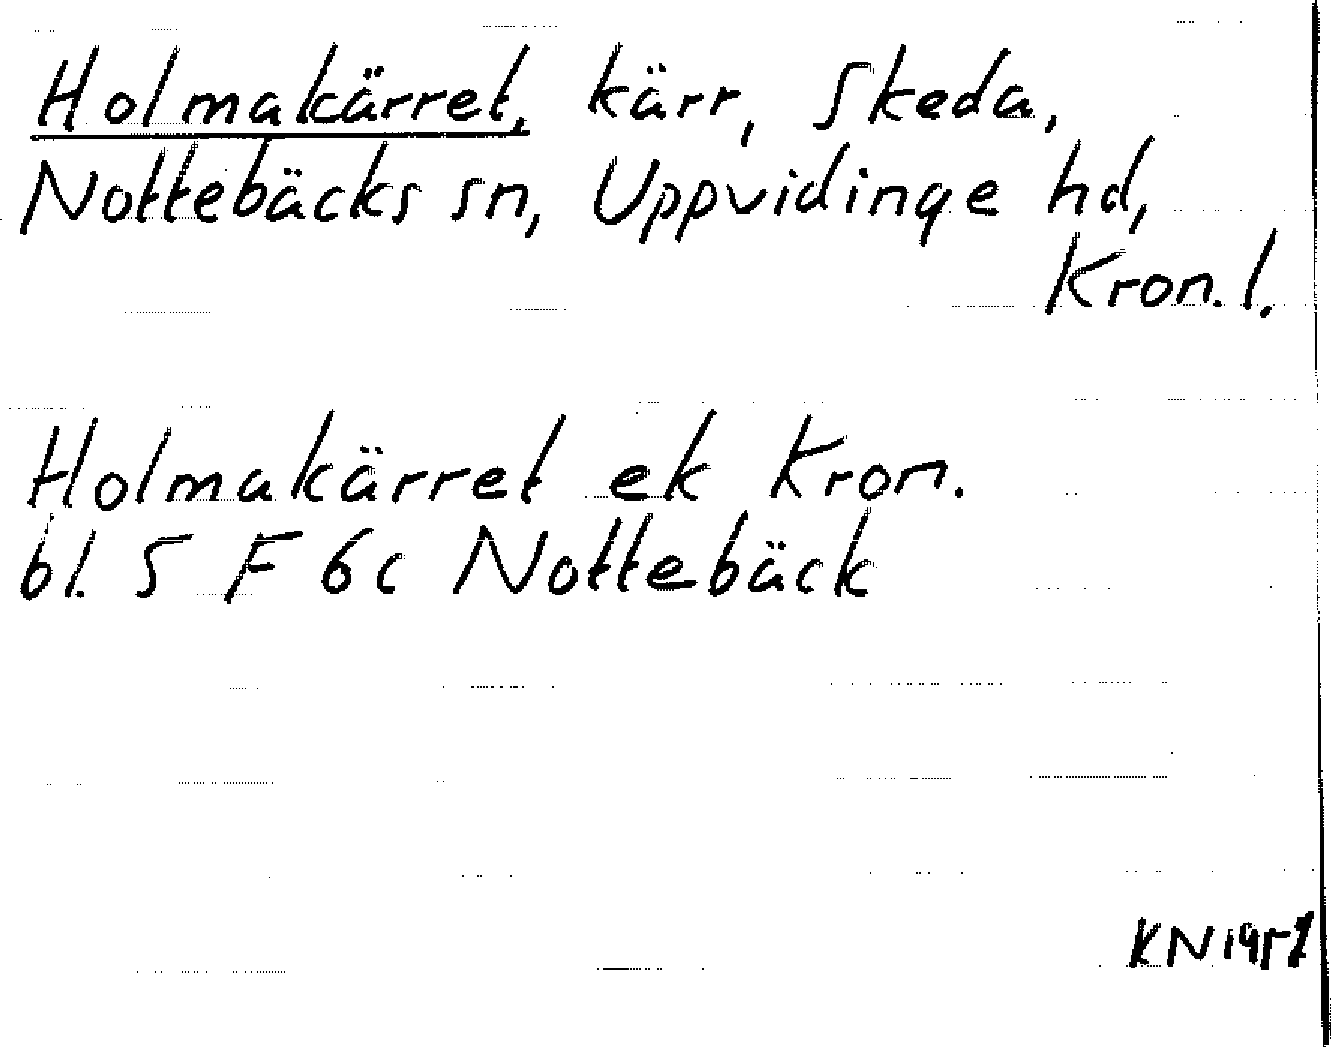 Holmakärret, kärr, Skeda,
Nottebäcks sn, Uppvidinge hd,
Kron. l.
Holmakärret ek Kron.
bl. 5 F 6c Nottebäck
KN 1951